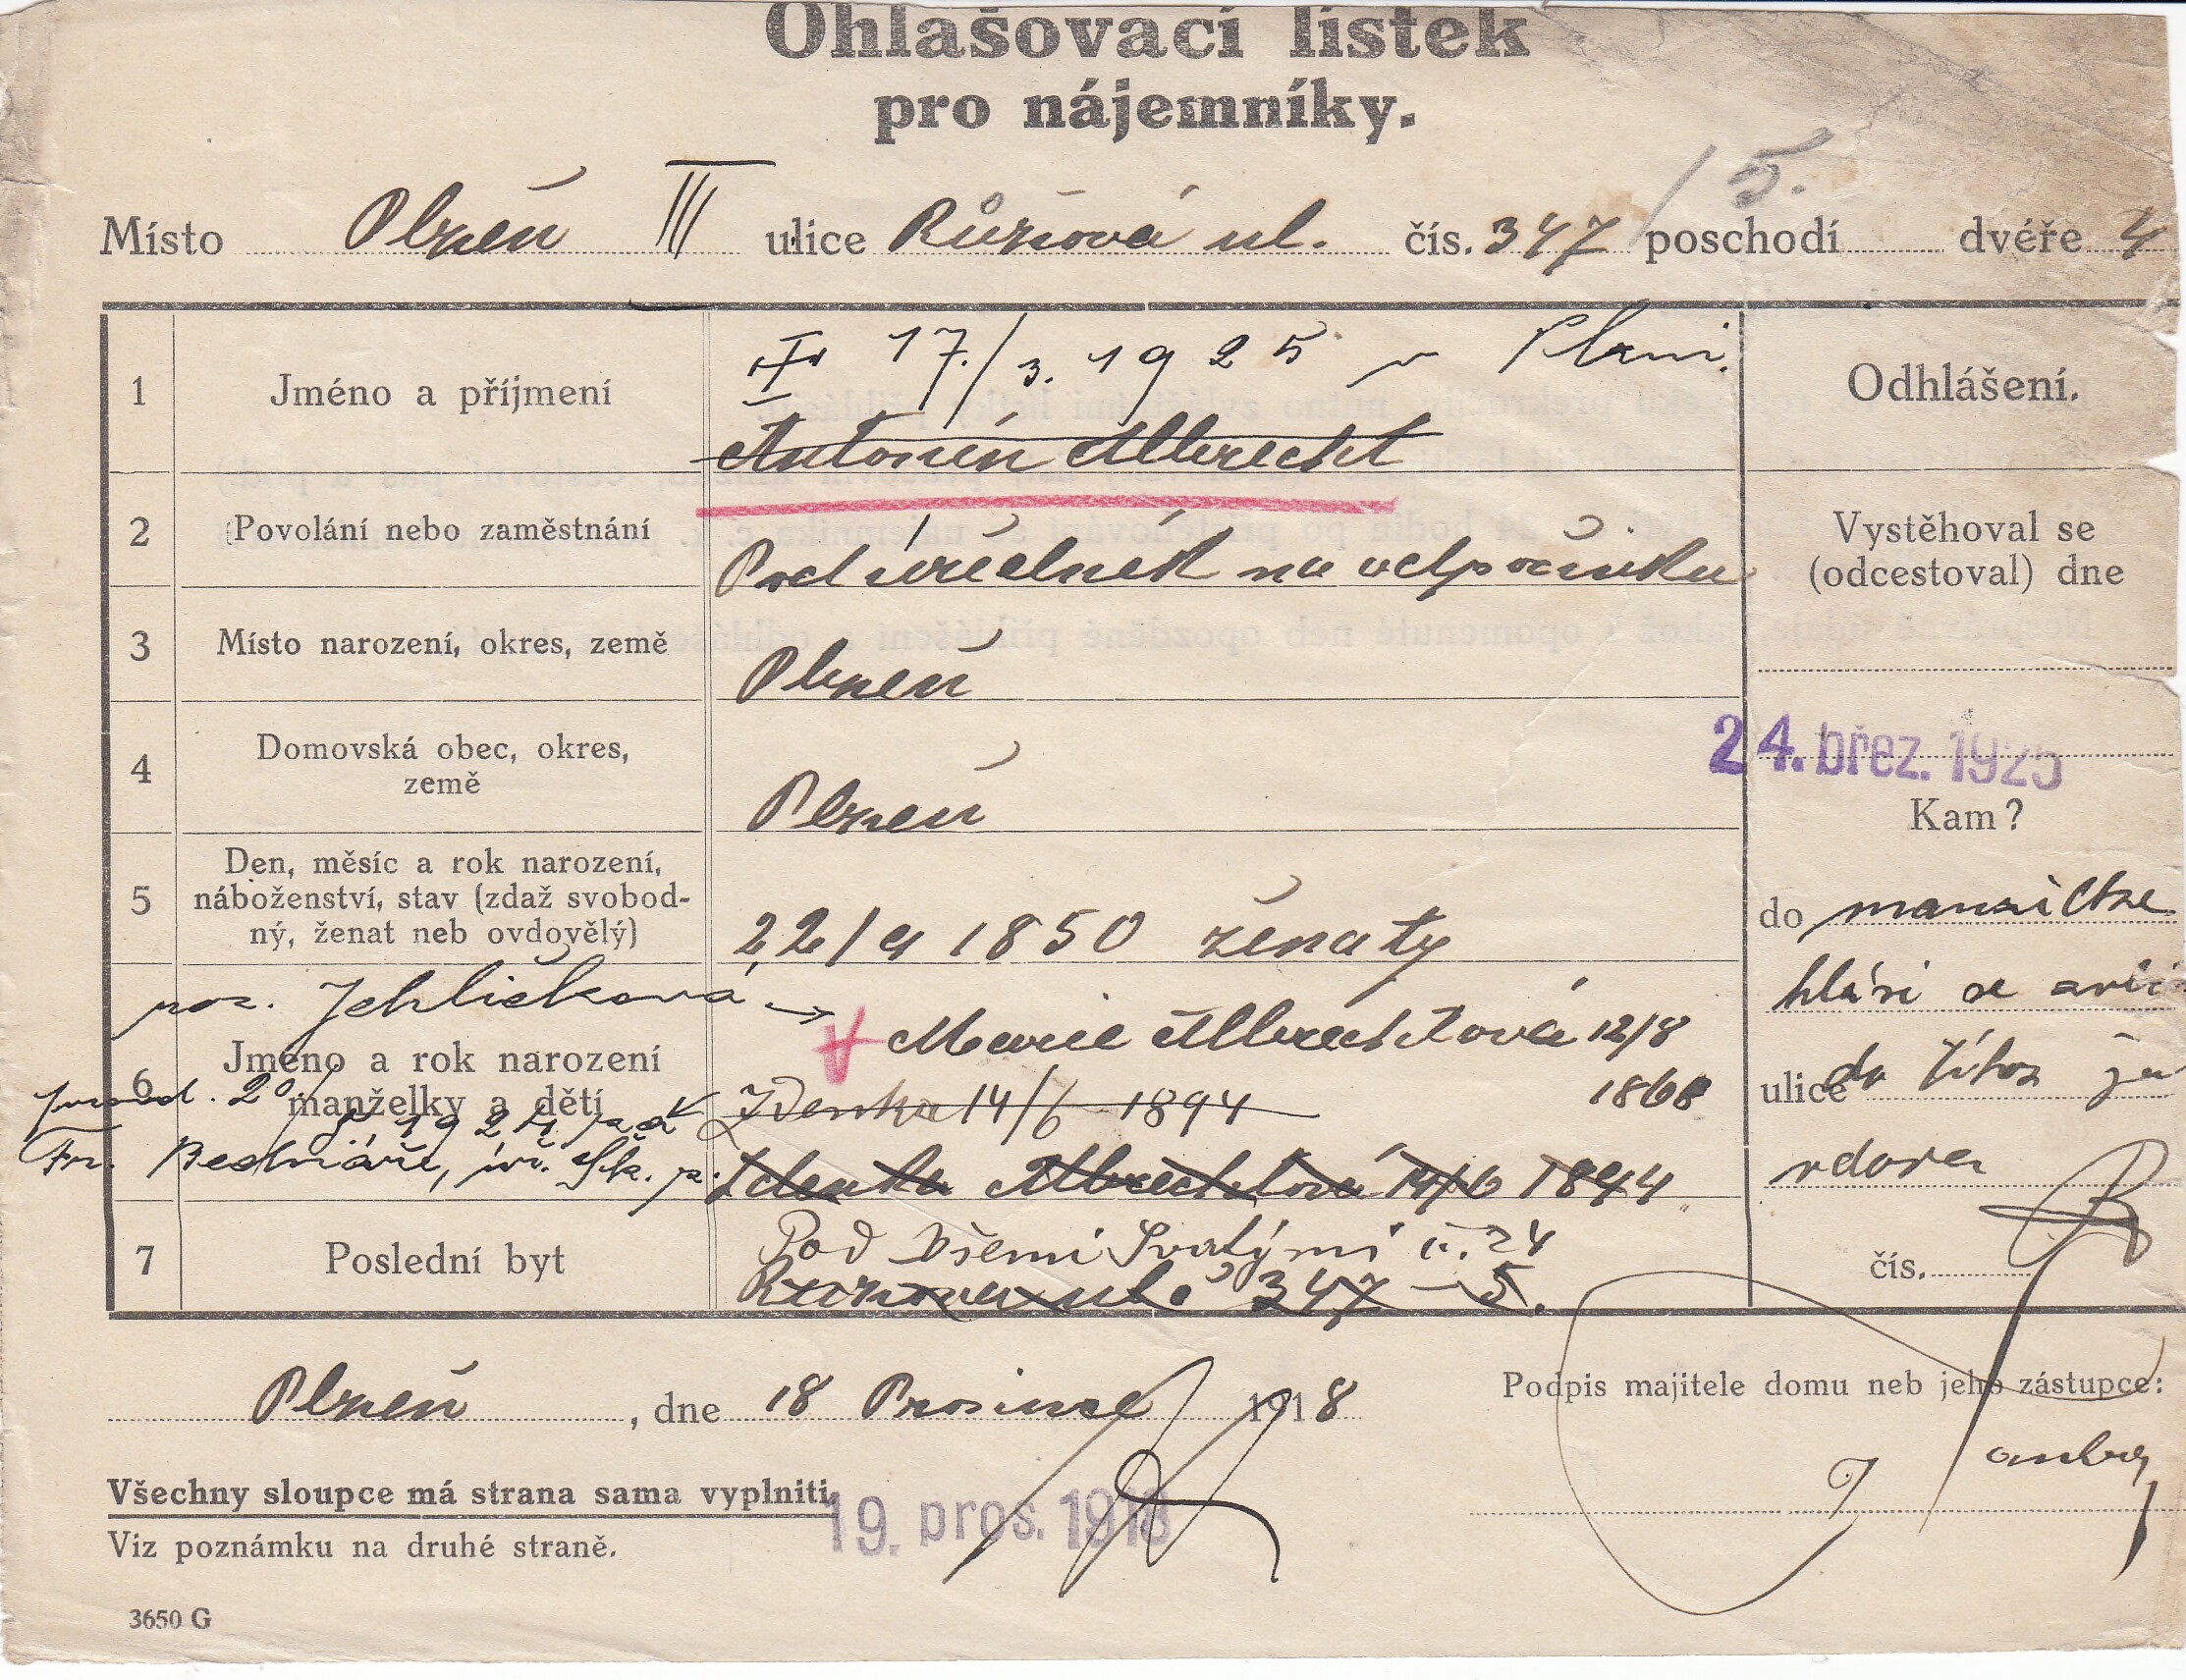 Ohlašovací lístek
pro nájemníky.
/5.
Místo Plzeň III ulice Růžová ul. čís. 347 poschodí dvéře 4
1 Jméno a příjmení
17./3. 1925 v Plzni.
Antonín Albrecht
Odhlášení.
2 Povolání nebo zaměstnání Podúředník na odpočinku
Vystěhoval se
(odcestoval) dne
3 Místo narození, okres, země Plzeň
4 Domovská obec, okres,
země
Plzeň
24. břez. 1925
Kam?
5 Den, měsíc a rok narození,
náboženství, stav (zdaž svobod-
ný, ženat neb ovdovělý)
22/9 1850 ženatý
do manželka
hlásí se
ulice za
vdovu
čís.
roz. Jehličková →
6 Jméno a rok narození
manželky a dětí
Marie Albrechtová 12/8
1868
Zdenka 14/6 1894
provd. 20/5 1924 za
Fr. Bednáře, úř. Šk. z.
Zdenka Albrechtová 14/6 1894
7 Poslední byt
Pod Všemi Svatými č. 24
Růžová ul. 347 – 5.
Plzeň, dne 18 Prosince 1918
Podpis majitele domu neb jeho zástupce:
Všechny sloupce má strana sama vyplniti.
19. pros. 1918
Viz poznámku na druhé straně.
3650 G